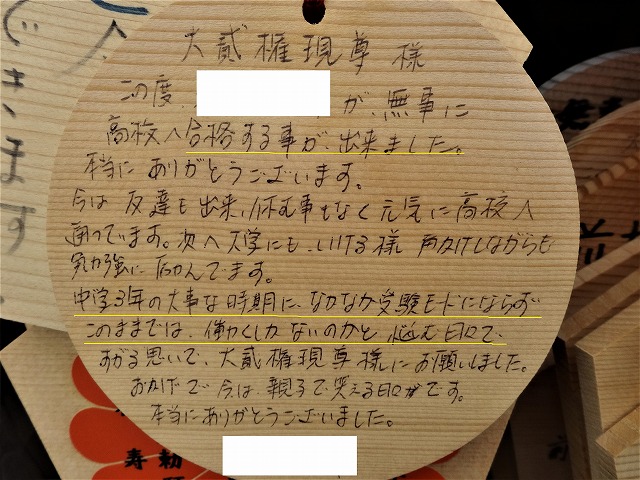 大貳権現尊様
この度、
が、無事に
高校へ合格する事が、出来ました。
本当にありがとうございます。
今は友達も出来、休む事もなく元気に高校へ
通ってます。次へ大学にも、いける様
勉強に励んでます。
中学3年の大事な時期に、なかなか受験モードにならず
このままでは、働くしかないのかと、悩む日々で、
すがる思いで、大貳権現尊様にお願いしました。
おかげで今は、親子で笑える日々がです。
本当にありがとうございました。
できます
寿
勅